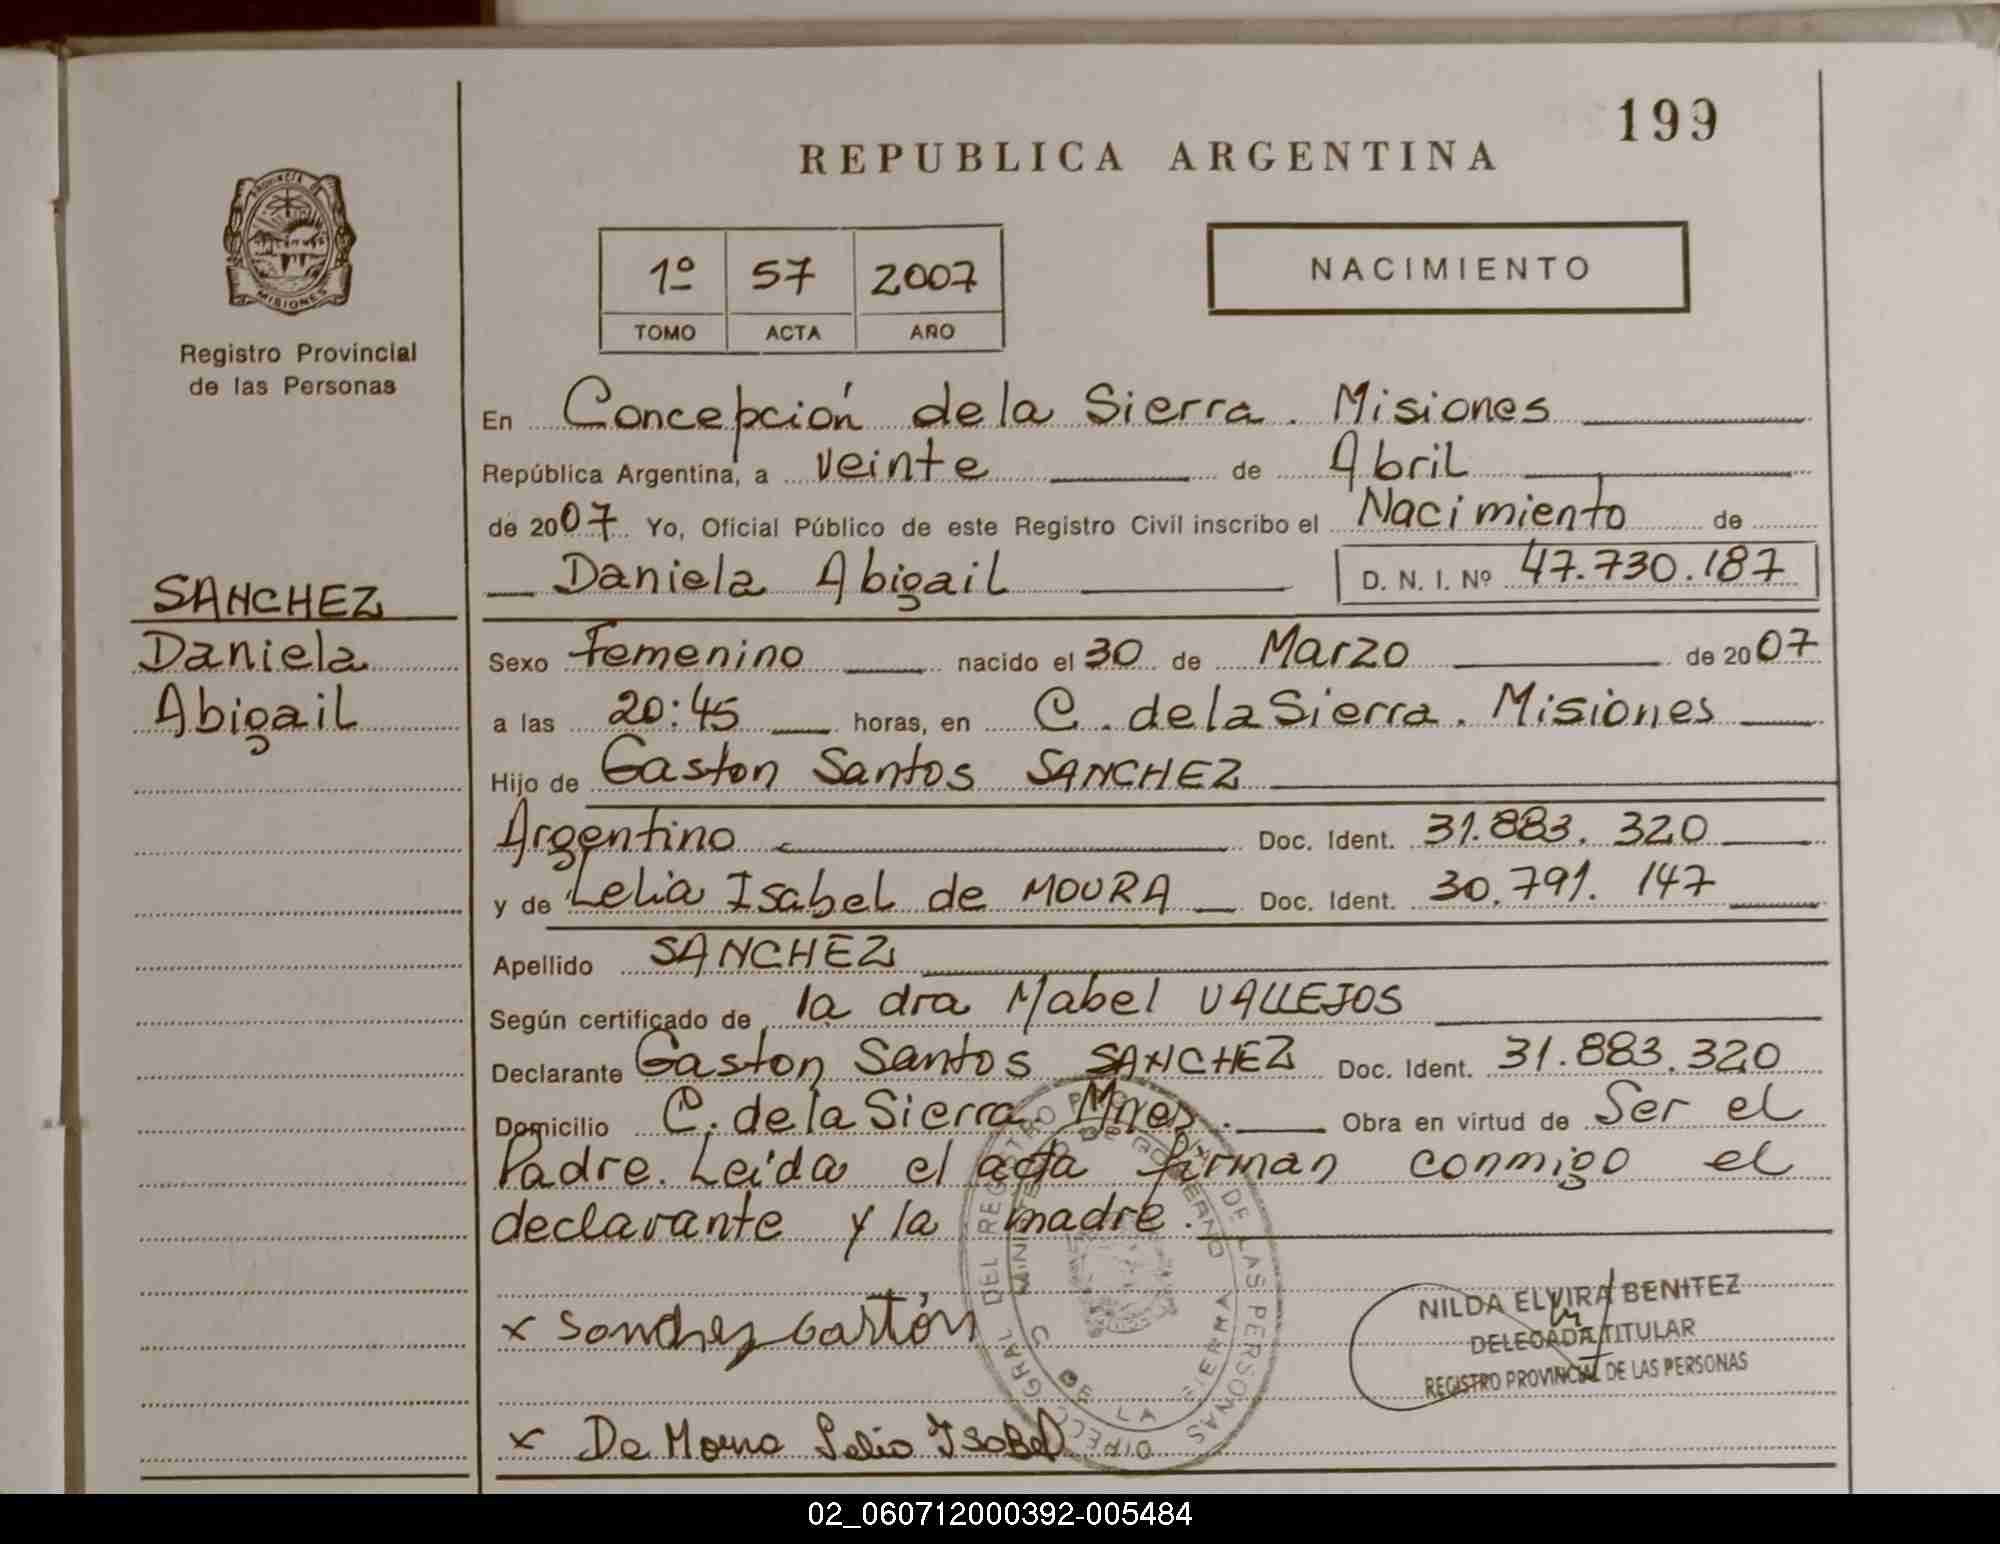 199
REPUBLICA ARGENTINA
PROVINCIA DE
MISIONES
Registro Provincial
de las Personas
1º 57 2007
TOMO ACTA AÑO
NACIMIENTO
En Concepción de la Sierra. Misiones
República Argentina, a veinte de Abril
de 2007 Yo, Oficial Público de este Registro Civil inscribo el Nacimiento de
Daniela Abigail D. N. I. Nº 47.730.187
SANCHEZ
Daniela
Abigail
Sexo Femenino nacido el 30 de Marzo de 2007
a las 20:45 horas, en C. de la Sierra. Misiones
Hijo de Gaston Santos SANCHEZ
Argentino Doc. Ident. 31.883.320
y de Lelia Isabel de MOURA Doc. Ident. 30.791.147
Apellido SANCHEZ
Según certificado de la dra Mabel VALLEJOS
Declarante Gaston Santos SANCHEZ Doc. Ident. 31.883.320
Domicilio C. de la Sierra Mnes. Obra en virtud de Ser el
Padre. Leida el acta firman conmigo el
declarante y la madre.
x Sanchez Gastón
x De Moura Lelia Isabel
DIRECC. GRAL. DEL REGISTRO PROVINCIAL DE LAS PERSONAS
MINISTERIO DE GOBIERNO
C. DE LA SIERRA
NILDA ELVIRA BENITEZ
DELEGADA TITULAR
REGISTRO PROVINCIAL DE LAS PERSONAS
02_060712000392-005484